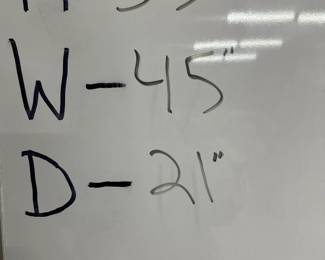 W - 45"
D - 21"